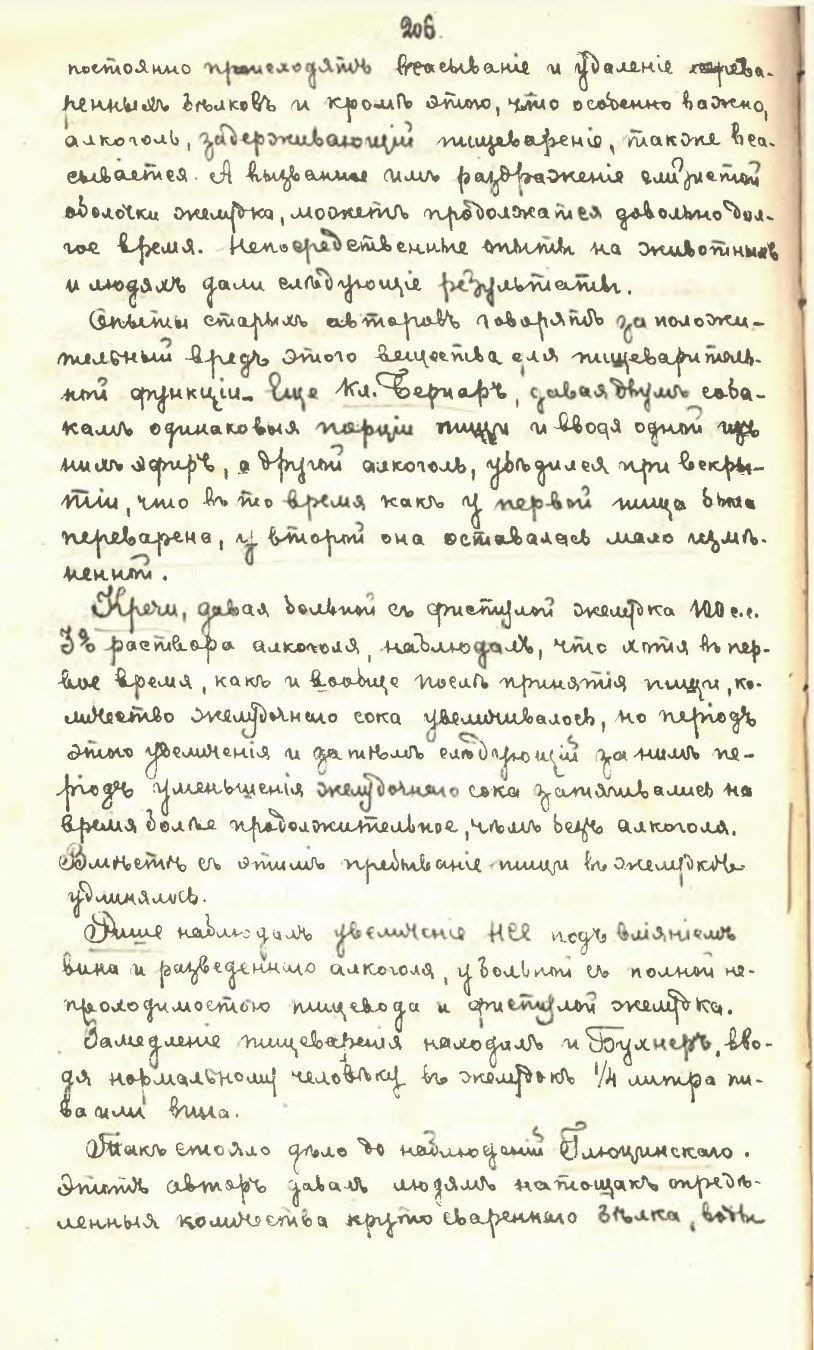 206
постоянно происходятъ всасываніе и удаленіе перева-
ренныхъ бѣлковъ и кромѣ этого, что особенно важно,
алкоголь, задерживающій пищевареніе, также вса-
сывается. А вызванное имъ раздраженіе слизистой
оболочки желудка, можетъ продолжатся довольно дол-
гое время. Непосредственные опыты на животныхъ
и людяхъ дали слѣдующіе результаты.
Опыты старыхъ авторовъ говорятъ за положи-
тельный вредъ этого вещества для пищеваритель-
ной функціи. Еще Кл. Бернаръ, давая двумъ соба-
камъ одинаковыя порціи пищи и вводя одной изъ
нихъ эфиръ, а другой алкоголь, убѣдился при вскры-
тіи, что въ то время какъ у первой пища была
переварена, у второй она оставалась мало измѣ-
ненной.
Кречи, давая больной съ фистулой желудка 100 с.с.
3% раствора алкоголя, наблюдалъ, что хотя въ пер-
вое время, какъ и вообще послѣ принятія пищи, ко-
личество желудочнаго сока увеличивалось, но періодъ
этого увеличенія и затѣмъ слѣдующій за нимъ пе-
ріодъ уменьшенія желудочнаго сока затягивались на
время болѣе продолжительное, чѣмъ безъ алкоголя.
Вмѣстѣ съ этимъ пребываніе пищи въ желудкѣ
удлинялось.
Рише наблюдалъ увеличеніе HCl подъ вліяніемъ
вина и разведеннаго алкоголя, у больной съ полной не-
проходимостью пищевода и фистулой желудка.
Замедленіе пищеваренія находилъ и Бухнеръ, вво-
дя нормальному человѣку въ желудокъ 1/4 литра пи-
ва или вина.
Такъ стояло дѣло до наблюденій Глюцинскаго.
Этотъ авторъ давалъ людямъ натощакъ опредѣ-
ленныя количества круто свареннаго бѣлка, воды